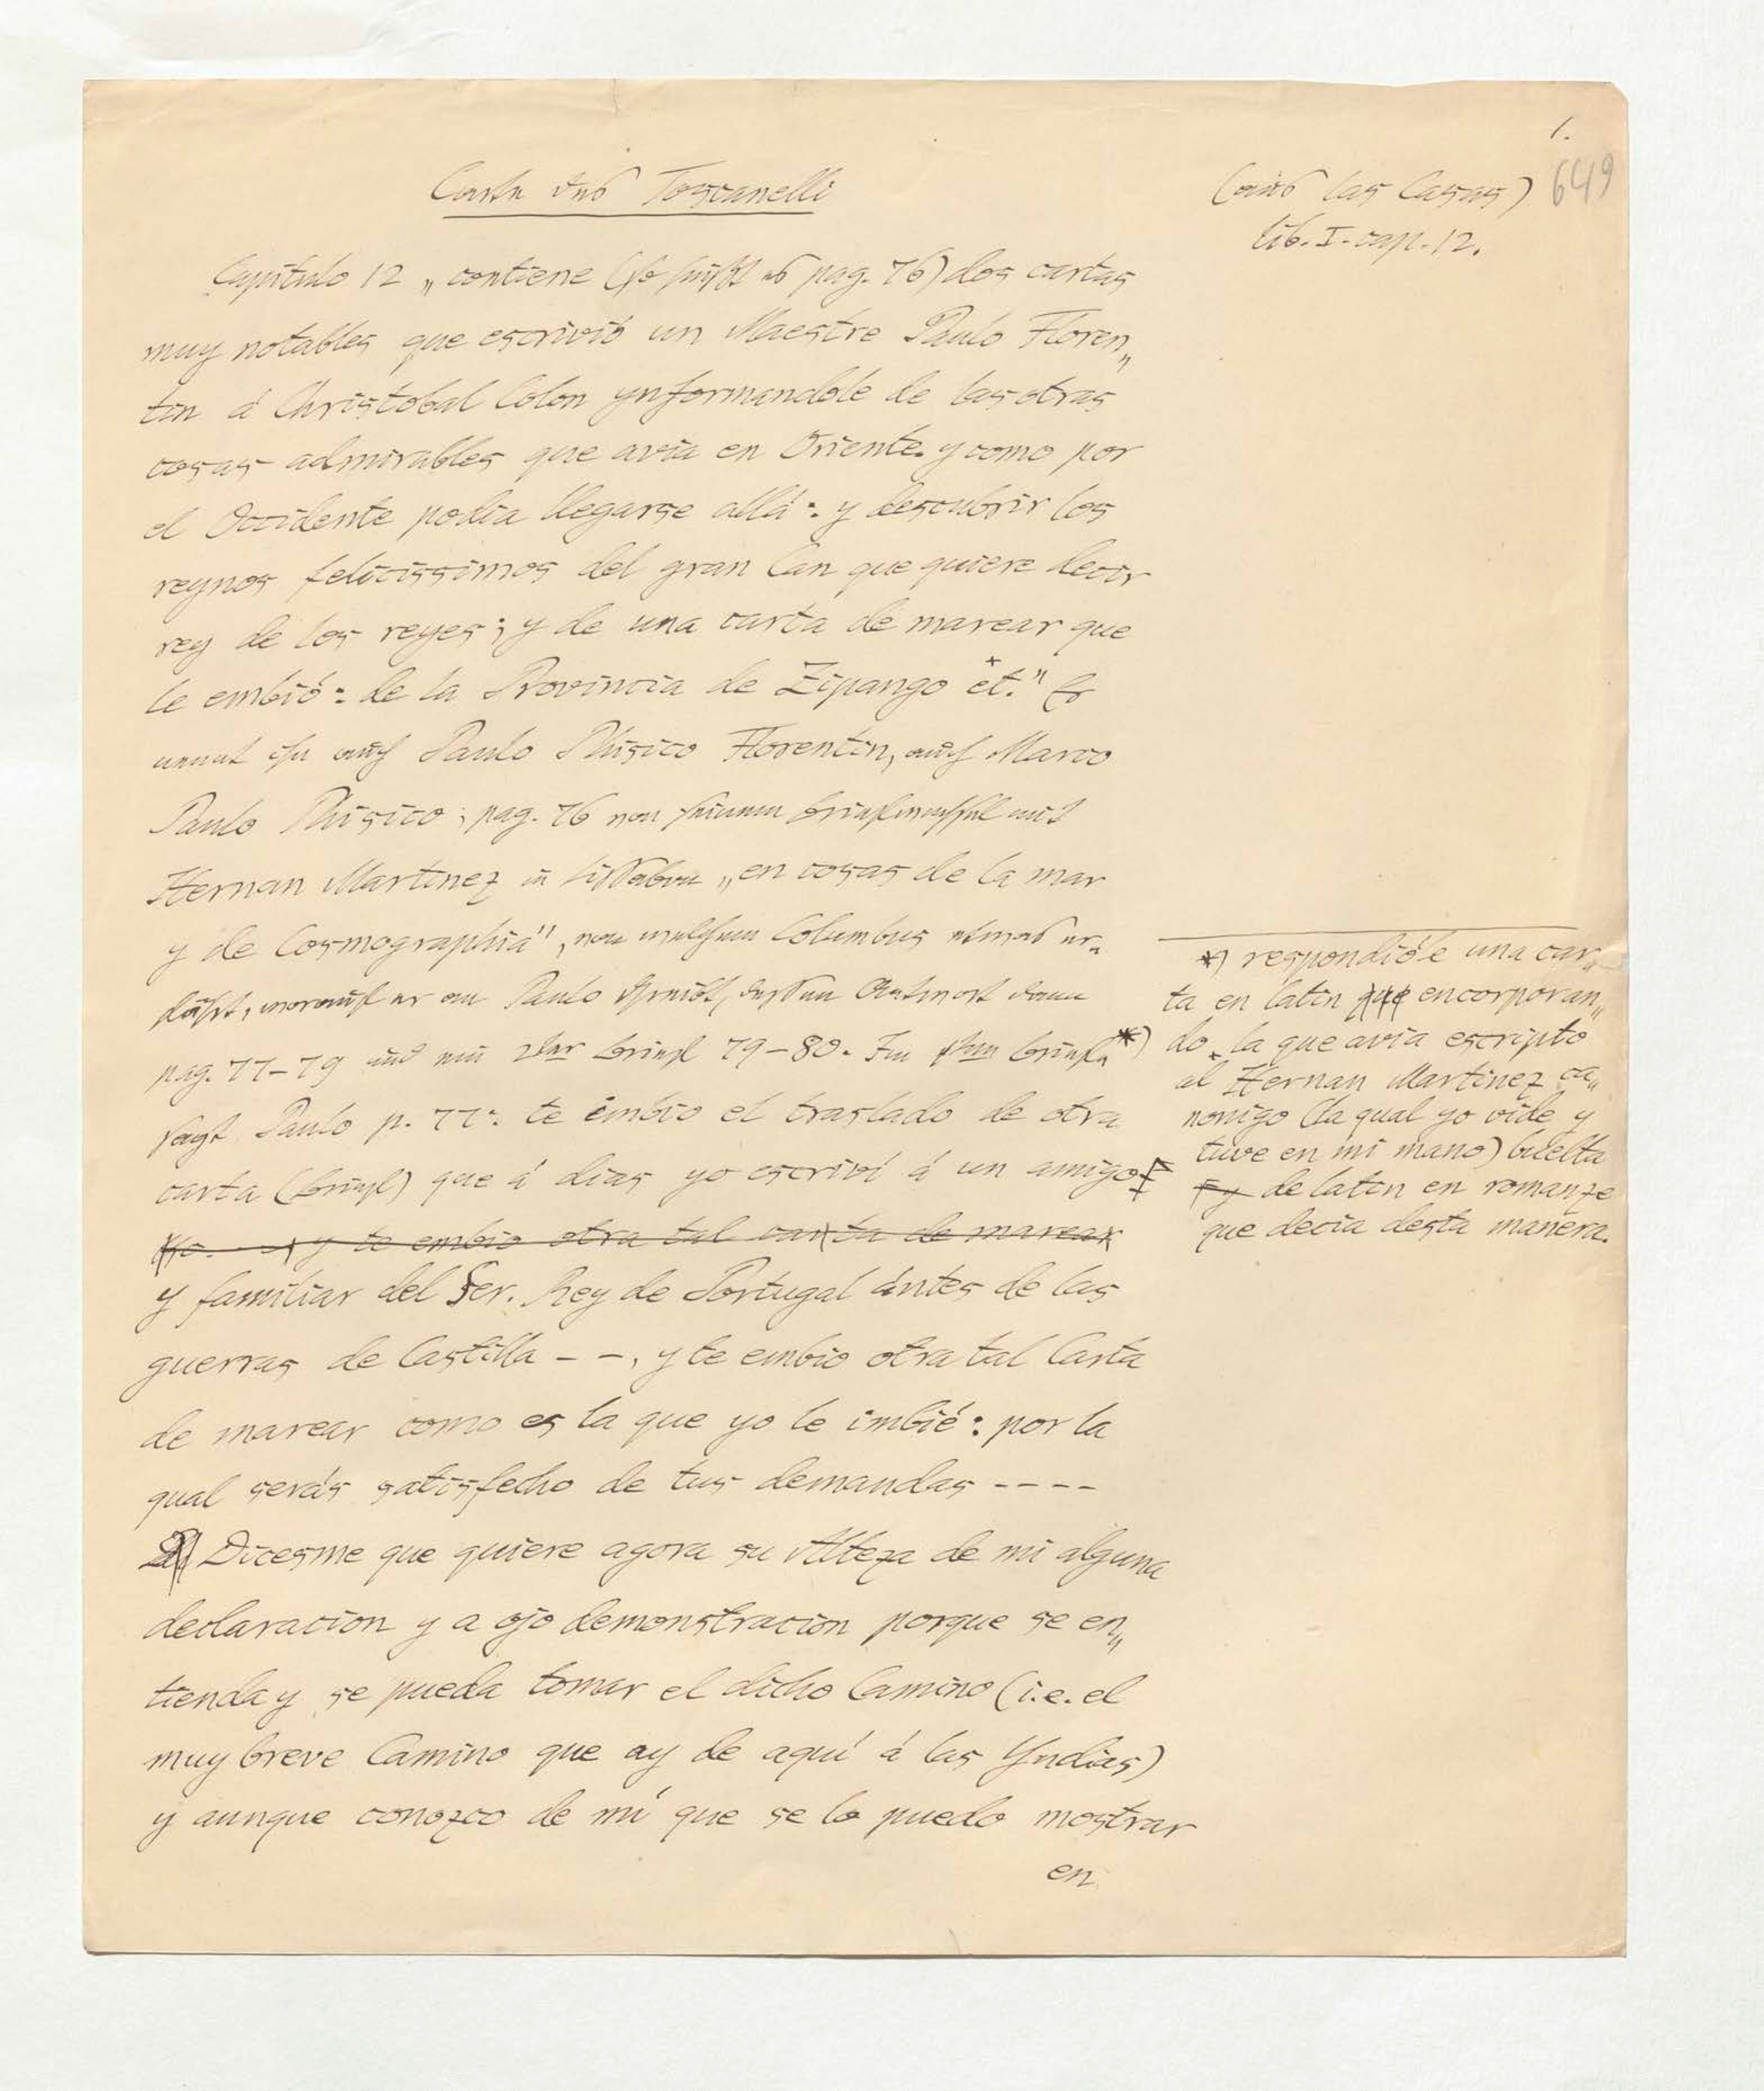 1.
649
Carta des Toscanelli
(aus las Casas)
lib. I. cap. 12.
Capitulo 12 „contiene (so heißt es pag. 76) dos cartas
muy notables que escrivió un Maestre Paulo Floren„
tin á Christobal Colon ynformandole de las otras
cosas admirables que avia en Oriente. y como por
el Occidente podia llegarse allá: y descubrir los
reynos felicissimos del gran Can que quiere decir
rey de los reyes; y de una carta de marear que
le embió: de la Provincia de Zipango et." Er
nennt ihn auch Paulo Phisico Florentin, auch Marco
Paulo Phisico; pag. 76 von seinem Briefwechsel mit
Hernan Martinez in Lissabon „en cosas de la mar
y de Cosmographia", von welchem Columbus etwas er„
fährt, worauf er an Paulo schreibt, dessen Antwort dann
pag. 77-79 und ein 2ter Brief 79-80. Im 1ten Briefe *)
sagt Paulo p. 77: te imbio el traslado de otra
carta (Brief) que á dias yo escriví á un amigo
y te embio otra tal carta de marear
y familiar del Ser. Rey de Portugal ántes de las
guerras de Castilla - -, y te embio otra tal Carta
de marear como es la que yo le imbié: por la
qual serás satisfecho de tus demandas - - - -
Dicesme que quiere agora su Alteza de mi alguna
declaracion y a ojo demonstracion porque se en„
tienda y se pueda tomar el dicho Camino (i.e. el
muy breve Camino que ay de aquí á las Yndias)
y aunque conozco de mí que se lo puedo mostrar
en
*) respondióle una car„
ta en latin que encorporan„
do la que avia escripto
al Hernan Martinez ca„
nonigo (la qual yo vide y
tuve en mi mano) buelta
de latin en romanze
que decia desta manera.